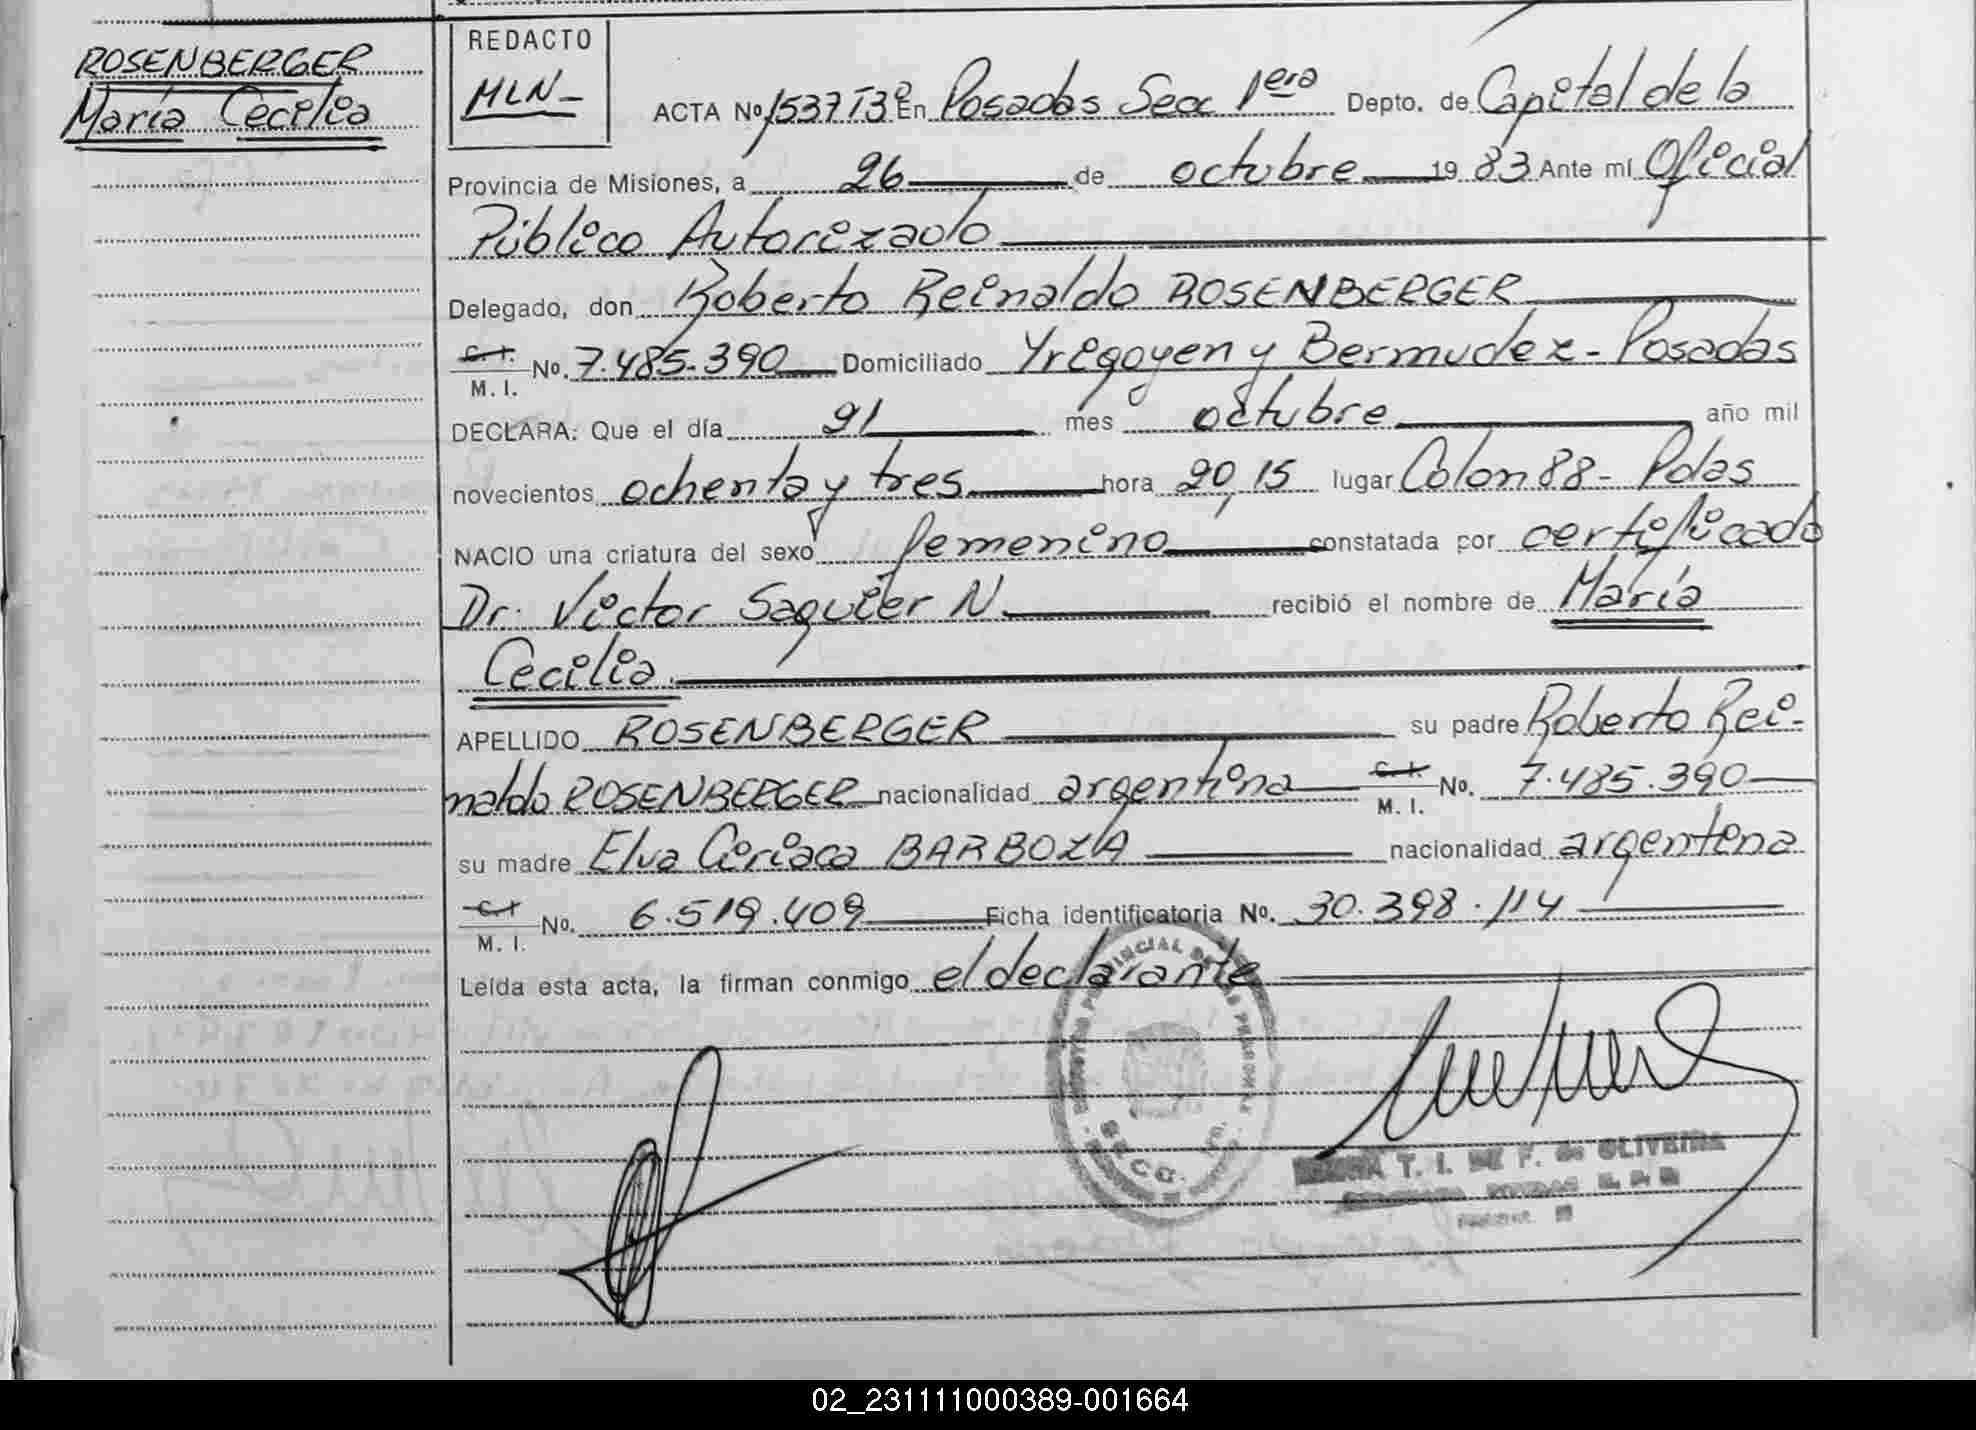 ROSENBERGER
María Cecilia
REDACTO
MLN-
ACTA Nº 1537 T3º En Posadas Secc 1era Depto. de Capital de la
Provincia de Misiones, a 26 de octubre 19 83 Ante mí Oficial
Público Autorizado
Delegado, don Roberto Reinaldo ROSENBERGER
C. I. / M. I. No. 7.485.390 Domiciliado Yrigoyen y Bermudez - Posadas
DECLARA: Que el día 21 mes octubre año mil
novecientos ochenta y tres hora 20,15 lugar Colon 88 - Pdas
NACIO una criatura del sexo femenino constatada por certificado
Dr. Victor Saguier N recibió el nombre de María
Cecilia
APELLIDO ROSENBERGER su padre Roberto Rei-
naldo ROSENBERGER nacionalidad argentina C. I. / M. I. No. 7.485.390
su madre Elva Ciriaca BARBOZA nacionalidad argentina
C. I / M. I. No. 6.519.409 Ficha identificatoria No. 30.398.114
Leída esta acta, la firman conmigo el declarante
T. I. DE F. de OLIVEIRA
02_231111000389-001664